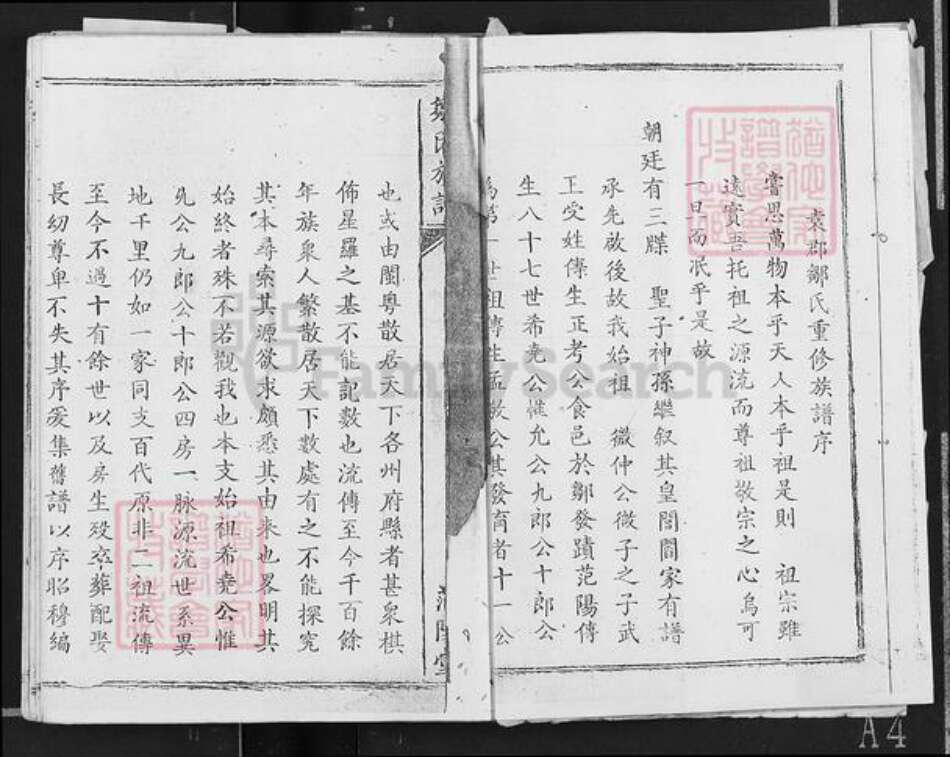 袁郡鄒氏重修族譜序
嘗思萬物本乎天人本乎祖是則 祖宗雖
遠實吾托祖之源流而尊祖敬宗之心烏可
一旦而泯乎是故
朝廷有三牒 聖子神孫繼叙其皇閣閭家有譜
承先啟後故我始祖 微仲公微子之子武
王受姓傳生正考公食邑於鄒發蹟范陽傳
生八十七世希堯公惟允公九郎公十郎公
為第一世祖傳生孟 公其發育者十一公
鄒氏族譜
范陽堂
也或由閩粵散居天下各州府縣者甚衆棋
佈星羅之基不能記數也流傳至今千百餘
年族衆人繁散居天下數處有之不能探究
其本尋索其源欲求頗悉其由来也畧明其
始終者殊不若觀我也本支始祖希堯公惟
允公九郎公十郎公四房一脉源流世系異
地千里仍如一家同支百代原非二祖流傳
至今不過十有餘世以及房生殁 葬配娶
長幼尊卑不失其序爰集舊譜以序昭穆編
FamilySearch
A4